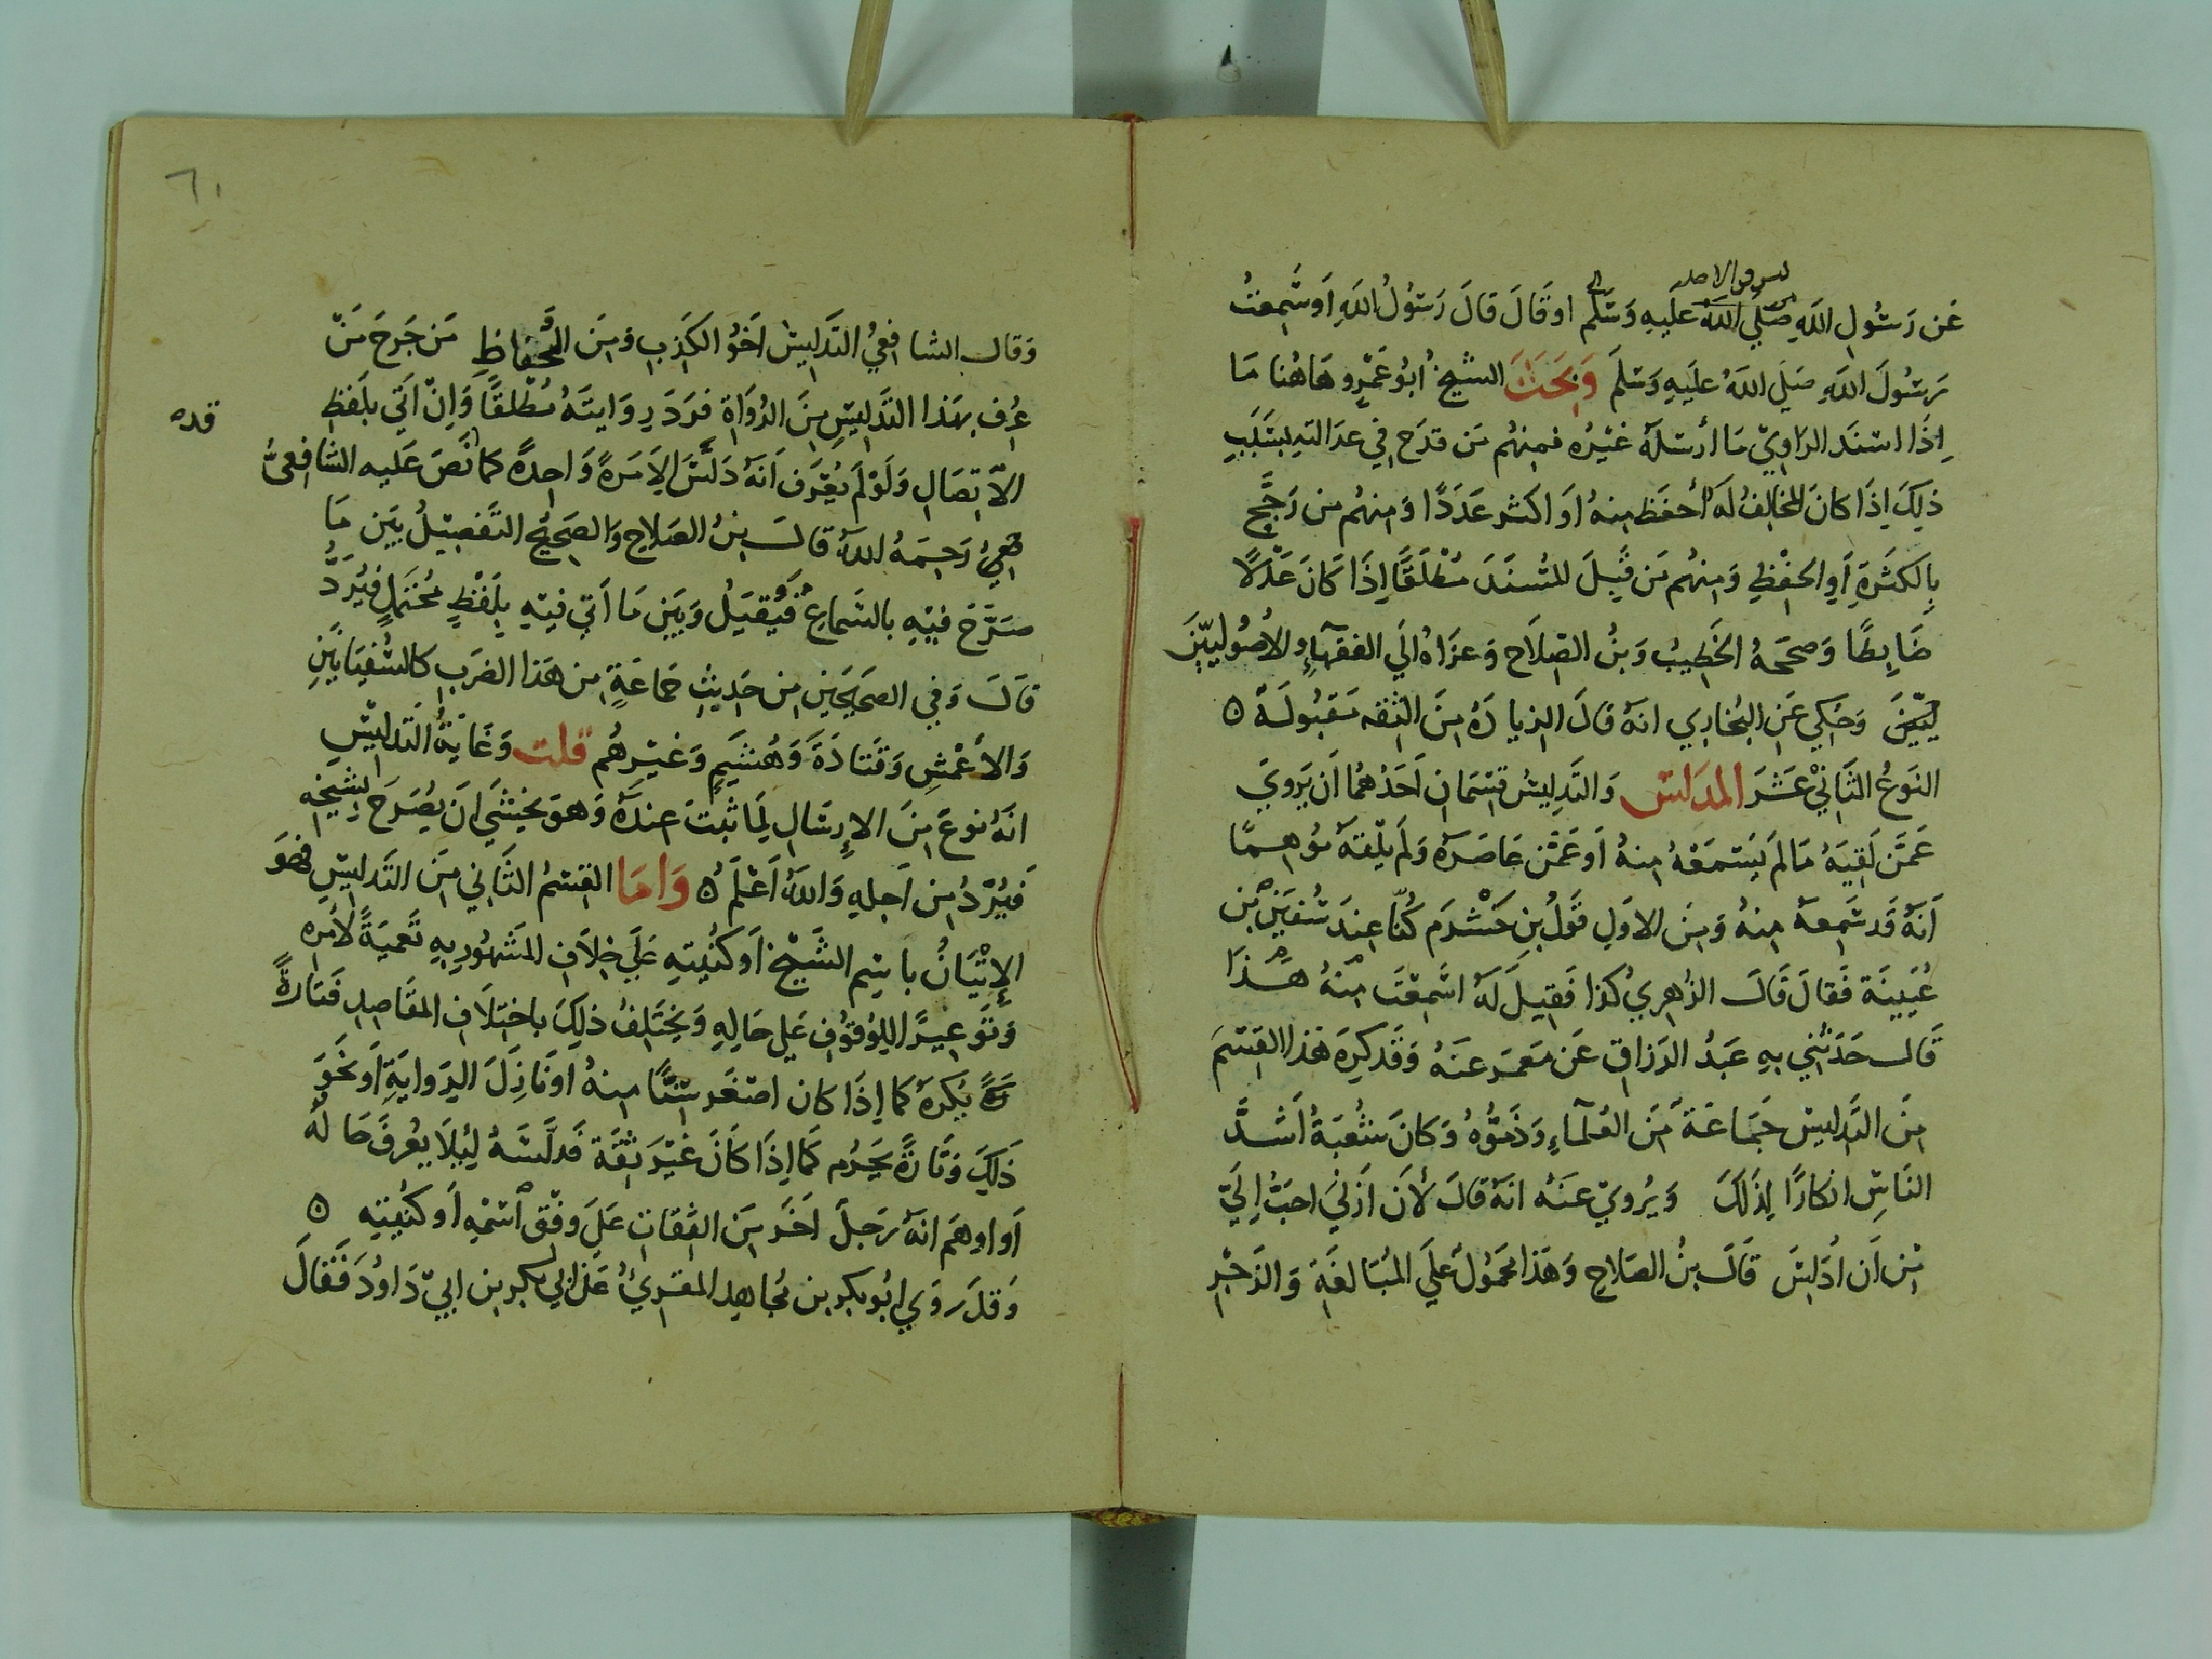 ليس في الاصل
عَن رَسُولِ اللهِ صَلَّى اللهُ عَلَيهِ وَسَلَّم اوقَالَ قالَ رَسُولُ اللهِ اَوسَمِعتُ
رَسُولَ اللهِ صَلَى اللهُ عَلَيهِ وَسَلمَ وَبَحَثَ الشيخ أبُو عَمْرٍو هَاهُنا مَا
اِذَا اسنَد الرَاوِيّ مَا أرسَلهُ غَيْرُه فمنهُم مَن قدَح في عدالتهِ بسَبَبِ
ذلِكَ اِذَا كانَ المخالِفُ لَه أحفَظ مِنهُ اَو اكثر عَدَدًا وَمنهُم من رَجَّح
بِالكَثرَةِ أوِ الحِفْظِ وَمِنهُم مَن قَبِلَ المُسنَدَ مُطْلَقًا اِذَا كَانَ عَدْلًا
ضَابِطًا وَصححَهُ الخَطِيبُ وَبنُ الصَلَاح وَعزَاهُ الَي الفقهَآءِ والاُصُوليّينَ
ليّينَ وَحُكِي عَنِ البُخارِي انهُ قالَ الزيادَهُ مِنَ الثقه مَقبُولَةٌ ه
النَوعُ الثَانِيْ عَشَرَ المدَلسَ وَالتَدلِيسُ قسْمَانِ اَحَدُهُما أن يَروِيَ
عَمَّن لَقِيَهُ مَا لم يَسْمَعْهُ مِنهُ اَو عَمَّن عَاصَرَهُ وَلَم يَلْقهُ مُوهِمًا
اَنهُ قَد سَمِعهُ مِنهُ وَمِنَ الاوَلِ قَولُ بنِ خَشْرَم كُنّا عِندَ سُفيَن بن
عُيَينَة فَقالَ قَالَ الزُهرِيُ كذا فَقِيلَ لَهُ اسَمِعْتَ مِنهُ هَذَا
قَال حَدَثَنِي بهِ عَبدُ الرَزاقِ عَن مَعمَر عنَهُ وَقَدكرِهَ هَذا القِسمَ
مِنَ التَدلِيسِ جَمَاعَةٌ مِنَ العُلَمآءِ وَذَمُّوُه وَكانَ شُعْبَةُ أَشَدَّ
النَاسِ انكارًا لِذَلكَ وَيُروِيْ عنَهُ انهُ قالَ لأن اَزنيَ احبَّ اِليّ
مِن اَن اُدَلِسَ قَالَ بنُ الصَلاحِ وَهَذا محَمُولٌ عَلَي المُبَالغَةِ وَالزَجْرِ
٦١
وَقال الشافِعِيُ التَدلِيسُ اَخُو الكَذِبِ وَمِنَ الحُفاظِ مَن جَرحَ مَنْ
عُرِف بهَذا التَدلِيسِ مِنَ الرُوَاةِ فرَدَ رِوَايتَهُ مُطْلقًا وَاِنْ اَتَي بلَفظِ
قده
الاتِصَالِ وَلَوْ لَم يُعْرَف اَنهُ دَلّسَ اِلامَرةً وَاحِدةً كما نَصَ عَلَيه الشافعِيُّ
فعِيُ رَحِمَهُ اللهُ قالَ بنُ الصَلاحِ وَالصَحِيحُ التَفصِيلُ بَين مَا
صَرَّحَ فِيهِ بالسَماعِ فَيُقبَلُ وَبَين مَا اَتي فيهِ بِلَفْظٍ مُحتَملٍ فيُرَدُّ
قَالَ وَفِي الصَحِيحَينِ مِن حَدِيثِ جَماعَةٍ مِن هَذا الضَربِ كالسُفيَانَينِ
وَالاَعْمَشِ وَقتَادَةَ وَهُشَيمٍ وَغَيرِهُم قلت وَغَايَةُ التَدلِيْسِ
انهُ نوعٌ مِنَ الإرسَالِ لِمَا ثبَتَ عِندَهُ وَهوَ يَخشَي ان يُصَرحَ بِشيخِه
فَيُرّدُ مِن اَجلهِ وَاللهُ اَعْلَمُ ه وَامَا القِسْمُ الثَاني مِنَ التَدلِيسِ فهوَ
الإتْيَانُ باسِم الشَيْخ اَو كُنيَتِهِ عَلَي خِلَافِ المَشهُورِ بِهِ تَعميَةً لأمرِه
وَتَوعِيرًا لِلوُقوُفِ عَلي حَالِهِ وَيختَلِفُ ذلِكَ باختِلَافِ المقَاصِدِ فَتَارةً
يُكرَهُ كما اِذَا كان اصْغَر سِنًّا مِنهُ اونَازِلَ الرِوايَةِ اَو نَحْوَ
ذَلِكَ وَتَارةً يَحرُم كَما اِذَا كَانَ غَيْرَ ثِقَة فَدلَّسَهُ لِئلَا يُعْرفَ حَالهُ
اَو اوهَم انهُ رَجلٌ اَخَر مِنَ الثِقاتِ عَلَي وفْقِ اسْمِهِ اَو كنُيتِهِ ه
وَقدَ رَوَي ابُو بكر بن مُجاهِدِ المقرِيْ عَن ابي بكر بن ابيْ دَاودُ فَقَالَ